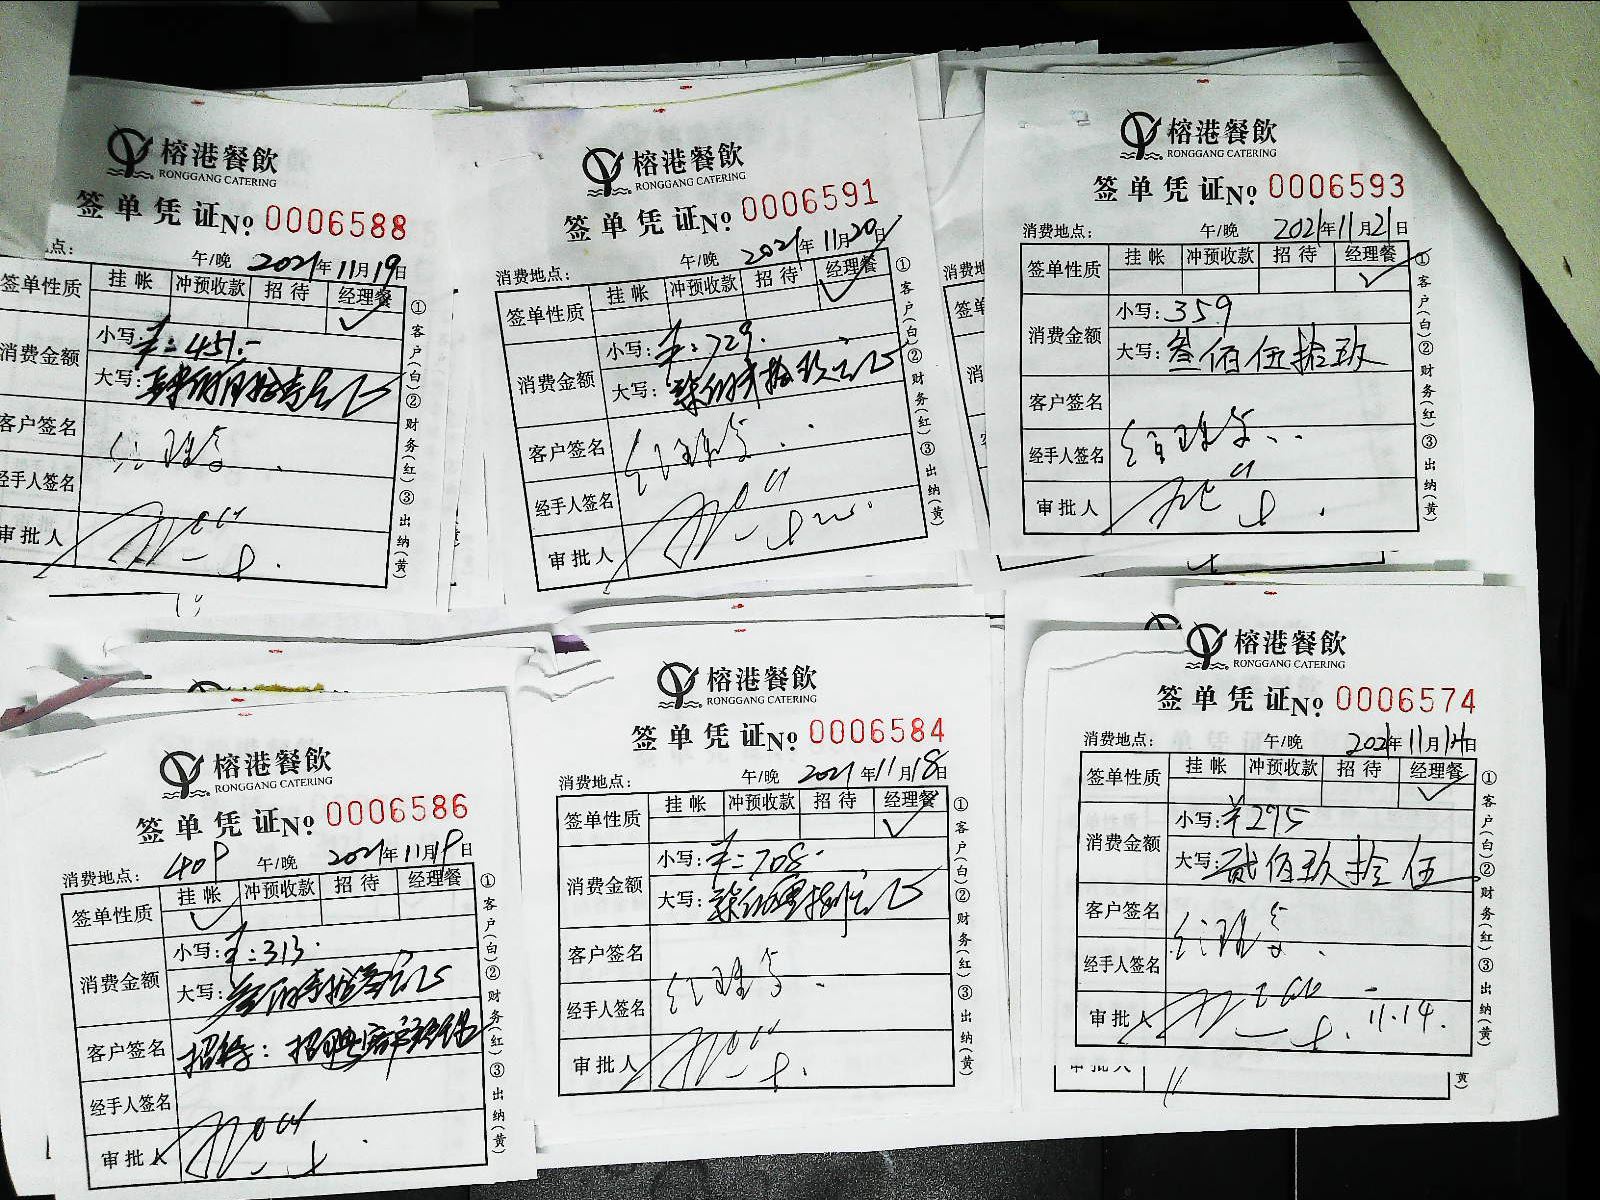 榕港餐飲
RONGGANG CATERING
签单凭证No. 0006588
点: 午/晚 2021年11月19日
签单性质 挂帐 冲预收款 招待 经理餐
✓
消费金额 小写: ¥:451.-
大写: 肆佰伍拾壹元正
客户签名
经手人签名
审批人
①客户(白)②财务(红)③出纳(黄)
榕港餐飲
RONGGANG CATERING
签单凭证No. 0006591
消费地点: 午/晚 2021年11月20日
签单性质 挂帐 冲预收款 招待 经理餐
✓
消费金额 小写: ¥:729.
大写: 柒佰贰拾玖元正
客户签名
经手人签名
审批人
①客户(白)②财务(红)③出纳(黄)
榕港餐飲
RONGGANG CATERING
签单凭证No. 0006593
消费地点: 午/晚 2021年11月21日
签单性质 挂帐 冲预收款 招待 经理餐
✓
消费金额 小写: 359
大写: 叁佰伍拾玖
客户签名
经手人签名
审批人
①客户(白)②财务(红)③出纳(黄)
榕港餐飲
RONGGANG CATERING
签单凭证No. 0006586
消费地点: 409 午/晚 2021年11月19日
签单性质 挂帐 冲预收款 招待 经理餐
✓
消费金额 小写: ¥:313.
大写: 叁佰壹拾叁元正
客户签名 招待:
经手人签名
审批人
①客户(白)②财务(红)③出纳(黄)
榕港餐飲
RONGGANG CATERING
签单凭证No. 0006584
消费地点: 午/晚 2021年11月18日
签单性质 挂帐 冲预收款 招待 经理餐
✓
消费金额 小写: ¥:708.
大写: 柒佰零拾捌元正
客户签名
经手人签名
审批人
①客户(白)②财务(红)③出纳(黄)
榕港餐飲
RONGGANG CATERING
签单凭证No. 0006574
消费地点: 午/晚 2021年11月14日
签单性质 挂帐 冲预收款 招待 经理餐
✓
消费金额 小写: ¥295
大写: 贰佰玖拾伍
客户签名
经手人签名
审批人 11.14.
①客户(白)②财务(红)③出纳(黄)